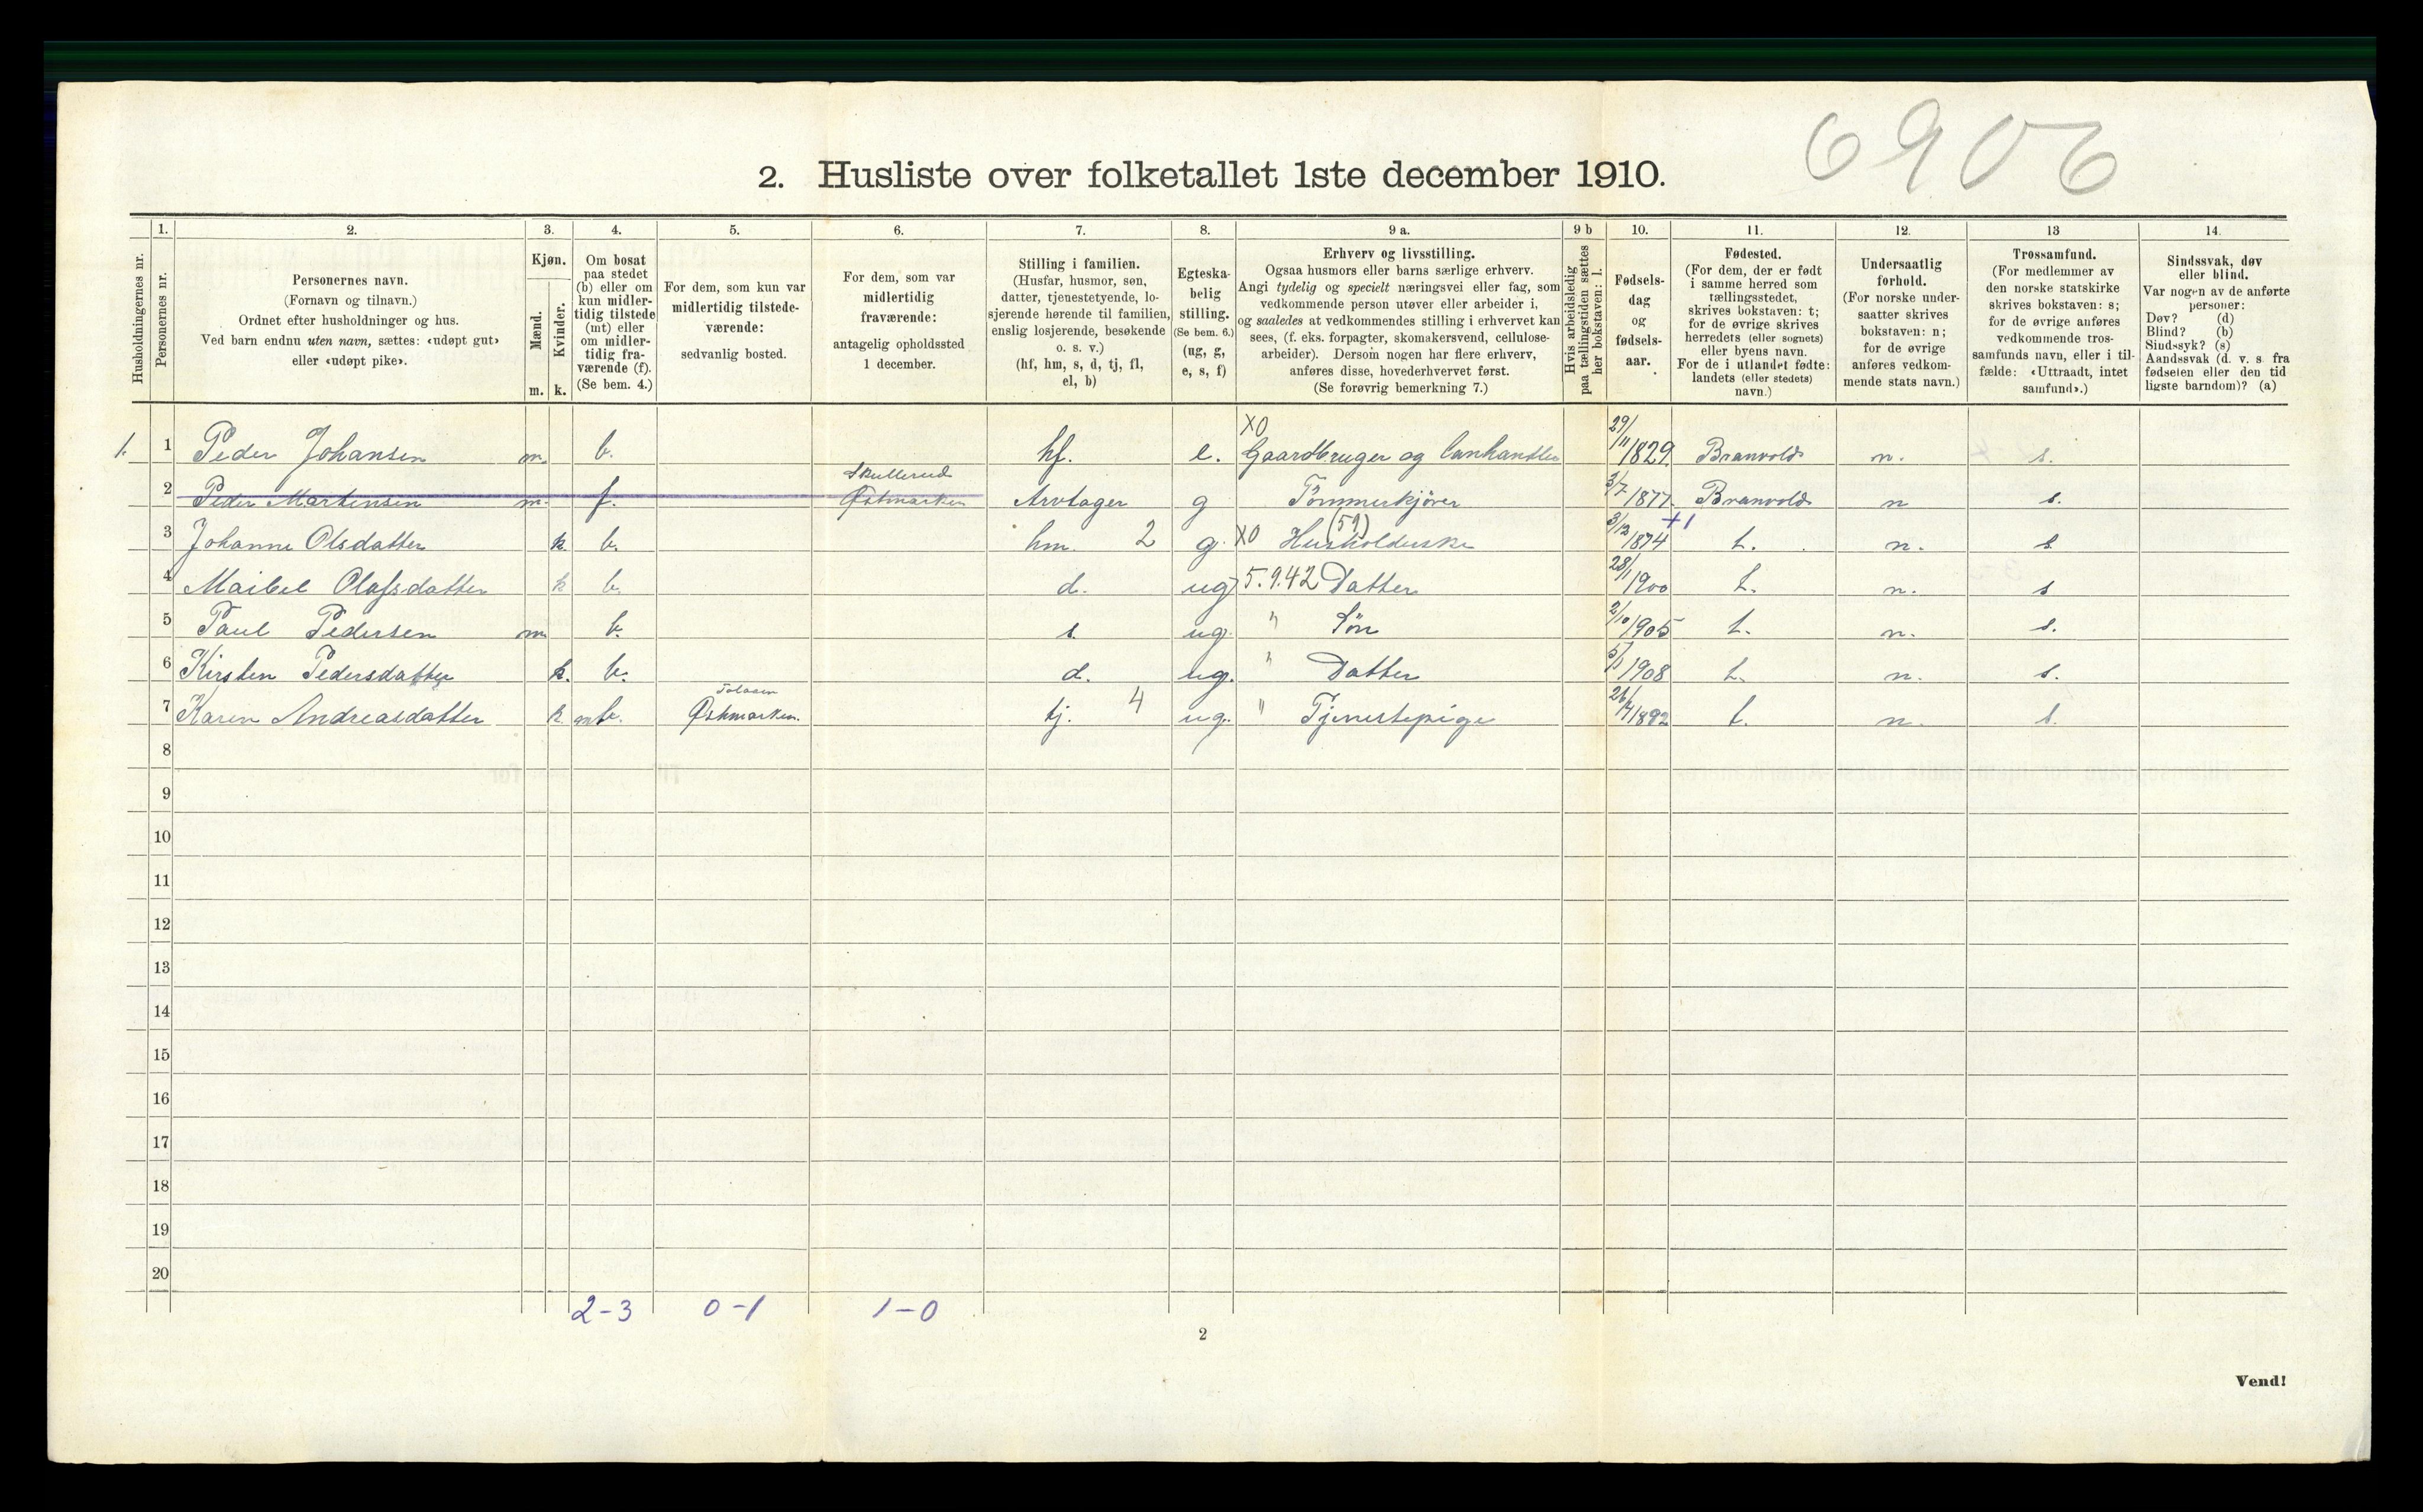 6906
2. Husliste over folketallet 1ste december 1910.
Husholdningernes nr.
1.
Personernes nr.
2.
Personernes navn.
(Fornavn og tilnavn.)
Ordnet efter husholdninger og hus.
Ved barn endnu uten navn, sættes: «udøpt gut»
eller «udøpt pike».
3.
Kjøn.
Mænd.
Kvinder.
m. k.
4.
Om bosat
paa stedet
(b) eller om
kun midler-
tidig tilstede
(mt) eller
om midler-
tidig fra-
værende (f).
(Se bem. 4.)
5.
For dem, som kun var
midlertidig tilstede-
værende:
sedvanlig bosted.
6.
For dem, som var
midlertidig
fraværende:
antagelig opholdssted
1 december.
7.
Stilling i familien.
(Husfar, husmor, søn,
datter, tjenestetyende, lo-
sjerende hørende til familien,
enslig losjerende, besøkende
o. s. v.)
(hf, hm, s, d, tj, fl,
el, b)
8.
Egteska-
belig
stilling.
(Se bem. 6.)
(ug, g,
e, s, f)
9 a.
Erhverv og livsstilling.
Ogsaa husmors eller barns særlige erhverv.
Angi tydelig og specielt næringsvei eller fag, som
vedkommende person utøver eller arbeider i,
og saaledes at vedkommendes stilling i erhvervet kan
sees, (f. eks. forpagter, skomakersvend, cellulose-
arbeider). Dersom nogen har flere erhverv,
anføres disse, hovederhvervet først.
(Se forøvrig bemerkning 7.)
9 b
Hvis arbeidsledig
paa tællingstiden sættes
her bokstaven: l.
10.
Fødsels-
dag
og
fødsels-
aar.
11.
Fødested.
(For dem, der er født
i samme herred som
tællingsstedet,
skrives bokstaven: t;
for de øvrige skrives
herredets (eller sognets)
eller byens navn.
For de i utlandet fødte:
landets (eller stedets)
navn.)
12.
Undersaatlig
forhold.
(For norske under-
saatter skrives
bokstaven: n;
for de øvrige
anføres vedkom-
mende stats navn.)
13
Trossamfund.
(For medlemmer av
den norske statskirke
skrives bokstaven: s;
for de øvrige anføres
vedkommende tros-
samfunds navn, eller i til-
fælde: «Uttraadt, intet
samfund».)
14.
Sindssvak, døv
eller blind.
Var nogen av de anførte
personer:
Døv? (d)
Blind? (b)
Sindssyk? (s)
Aandssvak (d. v. s. fra
fødselen eller den tid
ligste barndom)? (a)
1. 1 Peder Johansen m. b. hf. e. XO Gaardbruger og Lanhandler 29/11 1829 Branvold n. s.
2 Peder Martensen m. f. Skullerud Østmarken Arvtager g Tømmerkjører 3/7 1877 Branvold n s.
3 Johanne Olsdatter k. b. hm. 2 g. XO (59) Husholderske 3/12 1874 +1 t. n. s.
4 Maibel Olafsdatter k b. d. ug 5.9.42 Datter 28/1 1900 t. n. s
5 Paul Pedersen m. b. s. ug. " Søn 2/10 1905 t. n. s.
6 Kirsten Pedersdatter k. b. d. ug. " Datter 1908 t. n. s.
7 Karen Andreasdatter k. mt. Østmarken. tj. 4 ug. " Tjenestepige 26/4 1892 t. n. s.
8
9
10
11
12
13
14
15
16
17
18
19
20
2-3 0-1 1-0
2
Vend!